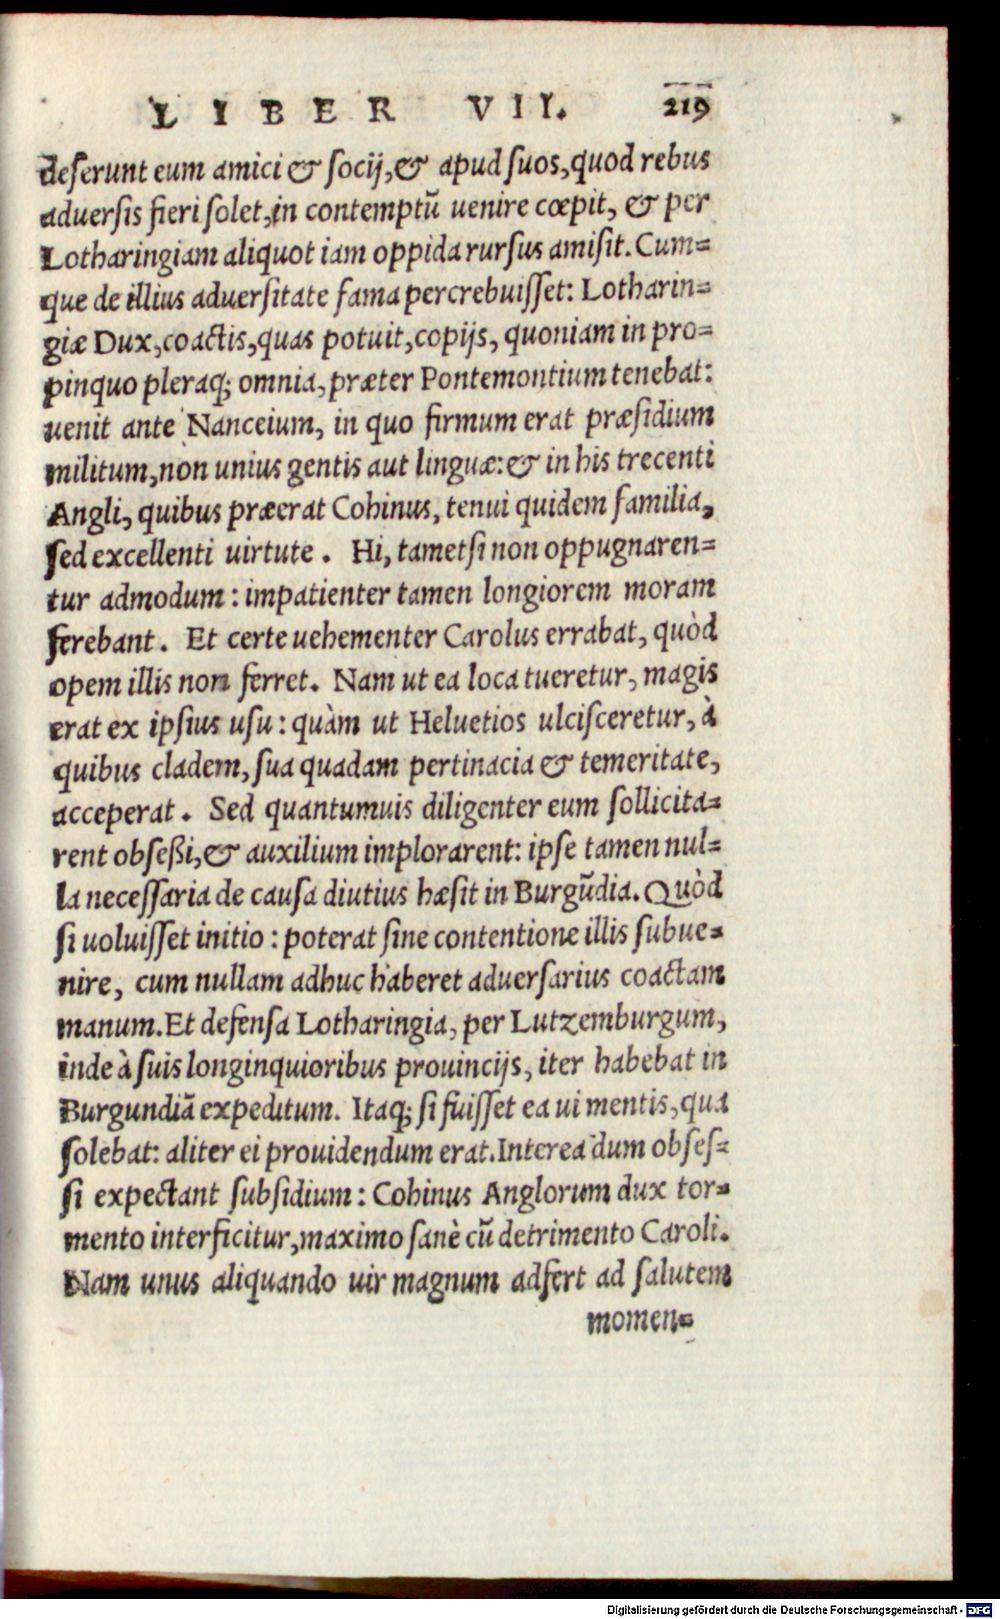 LIBER VII. 219
deserunt eum amici & socij,& apud suos,quod rebus
aduersis fieri solet,in contemptū uenire cœpit, & per
Lotharingiam aliquot iam oppida rursus amisit.Cum=
que de illius aduersitate fama percrebuisset: Lotharin=
giæ Dux,coactis,quas potuit,copijs, quoniam in pro=
pinquo pleraq; omnia, præter Pontemontium tenebat:
uenit ante Nanceium, in quo firmum erat præsidium
militum,non unius gentis aut linguæ:& in his trecenti
Angli, quibus præerat Cohinus, tenui quidem familia,
sed excellenti uirtute. Hi, tametsi non oppugnaren=
tur admodum: impatienter tamen longiorem moram
ferebant. Et certe uehementer Carolus errabat, quòd
opem illis non ferret. Nam ut ea loca tueretur, magis
erat ex ipsius usu: quàm ut Heluetios ulcisceretur, à
quibus cladem, sua quadam pertinacia & temeritate,
acceperat. Sed quantumuis diligenter eum sollicita=
rent obseßi,& auxilium implorarent: ipse tamen nul=
la necessaria de causa diutius hæsit in Burgūdia. Quòd
si uoluisset initio: poterat sine contentione illis subue=
nire, cum nullam adhuc haberet aduersarius coactam
manum.Et defensa Lotharingia, per Lutzemburgum,
inde à suis longinquioribus prouincijs, iter habebat in
Burgundiā expeditum. Itaq; si fuisset ea ui mentis, qua
solebat: aliter ei prouidendum erat.Interea dum obses=
si expectant subsidium: Cohinus Anglorum dux tor=
mento interficitur,maximo sanè cū detrimento Caroli.
Nam unus aliquando uir magnum adfert ad salutem
momen=
Digitalisierung gefördert durch die Deutsche Forschungsgemeinschaft - DFG